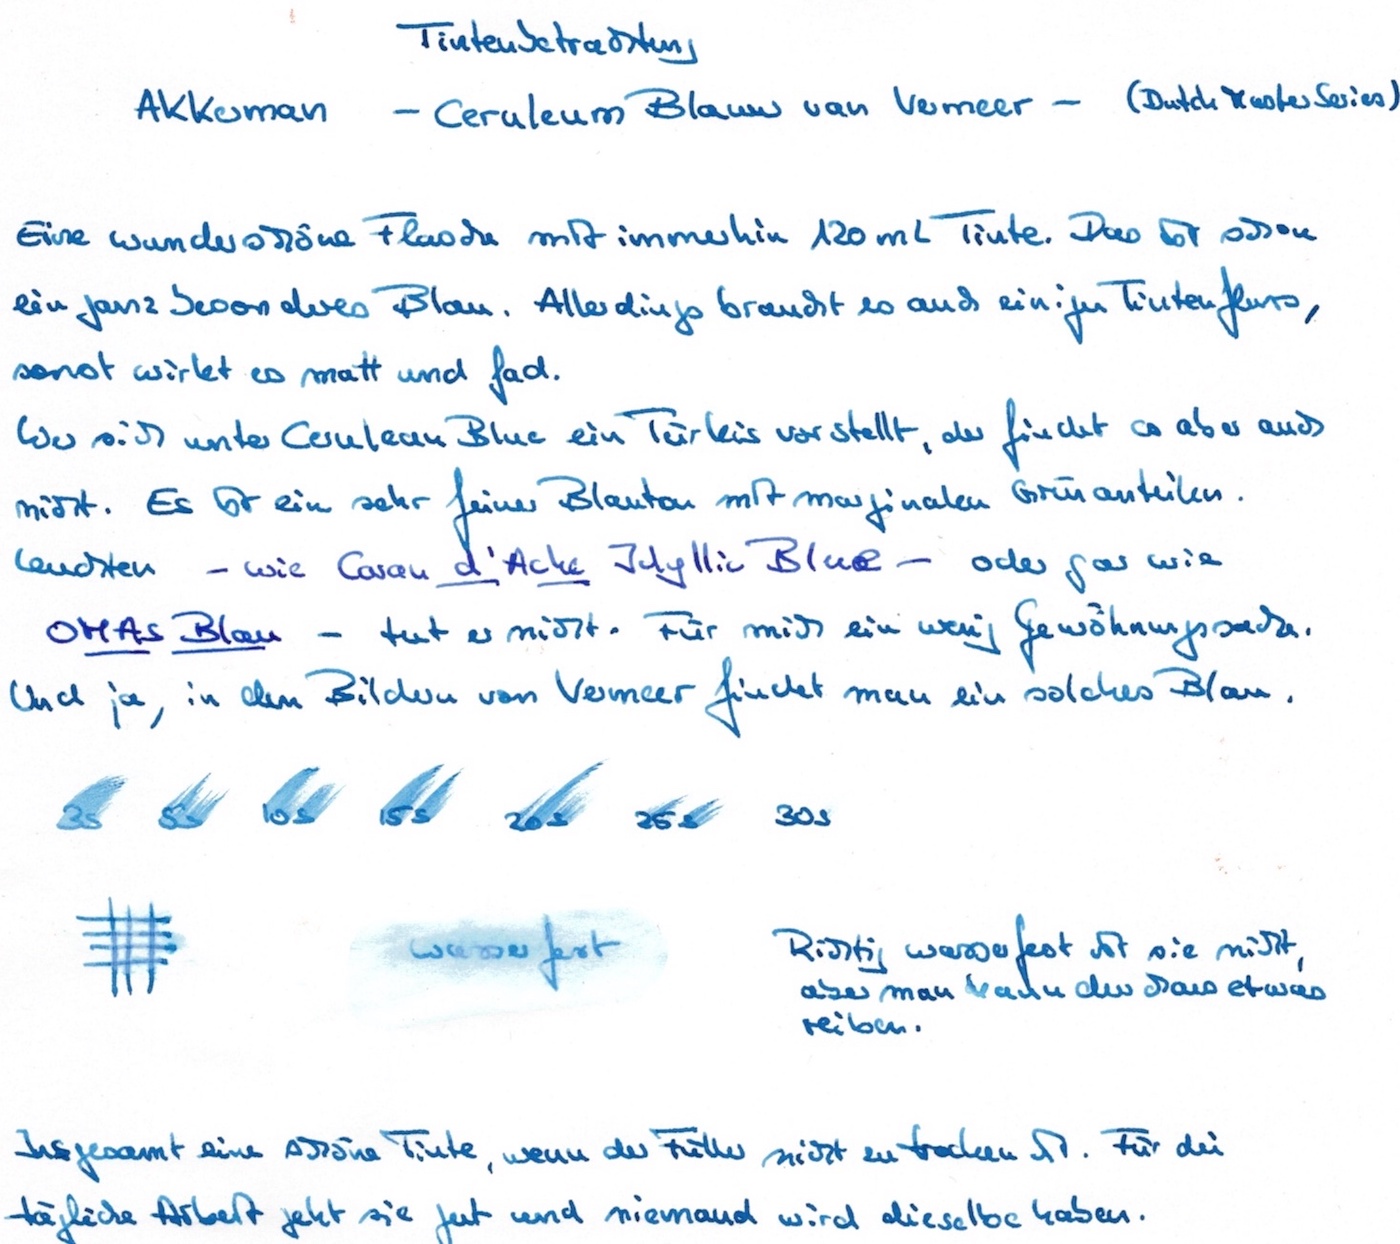 Tintenbetrachtung
Akkerman – Ceruleum Blauw van Vermeer – (Dutch Master Series)
Eine wunderschöne Flasche mit immerhin 120 mL Tinte. Das ist schon
ein ganz besonderes Blau. Allerdings braucht es auch einigen Tintenfluss,
sonst wirkt es matt und fad.
Wer sich unter Cerulean Blue ein Türkis vorstellt, der findet es aber auch
nicht. Es ist ein sehr feiner Blauton mit marginalen Grünanteilen.
Leuchten – wie Caran d'Ache Idyllic Blue – oder gar wie
OMAS Blau – tut es nicht. Für mich ein wenig Gewöhnungssache.
Und ja, in den Bildern von Vermeer findet man ein solches Blau.
2s 5s 10s 15s 20s 25s 30s
wasserfest
Richtig wasserfest ist sie nicht,
aber man kann durchaus etwas
reiben.
Insgesamt eine schöne Tinte, wenn der Füller nicht zu trocken ist. Für dei
tägliche Arbeit geht sie gut und niemand wird dieselbe haben.